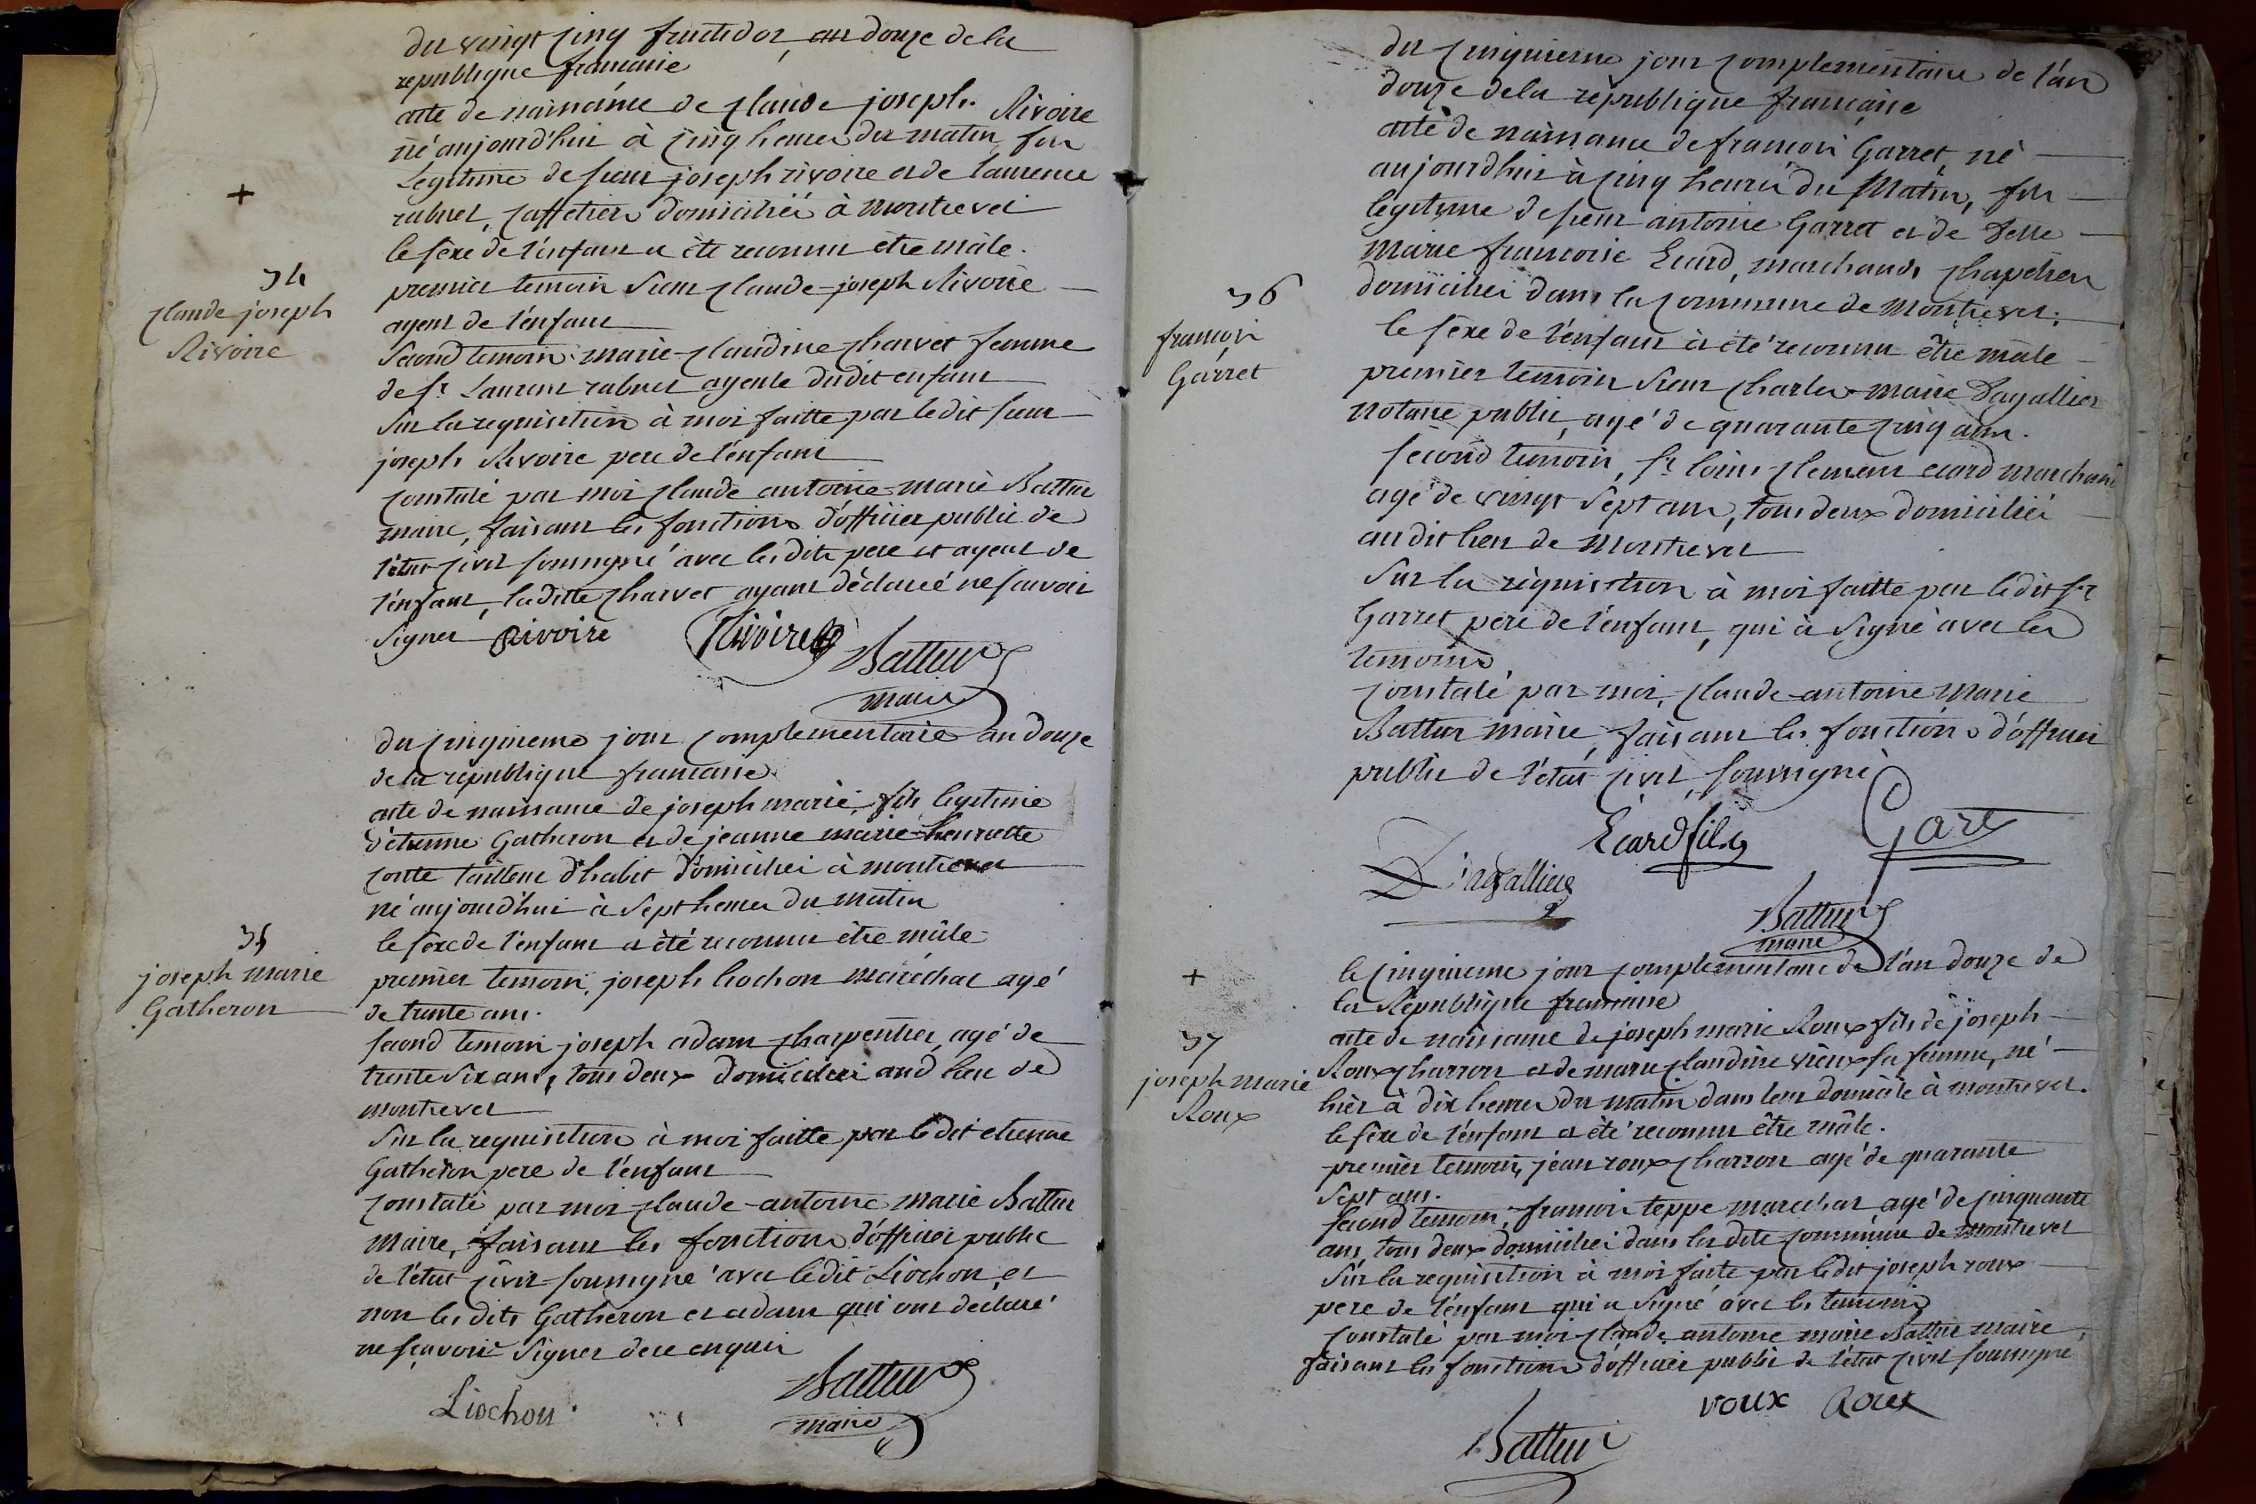 du vingt cinq fructidor an douze de la
republique francaise
acte de naissance de claude joseph Rivoire
né aujourd'hui à cinq heures du matin fils
Legitime de sieur joseph rivoire et de laurence
rabuel, caffetiers domiciliés à Montrevel
le sexe de l'enfant a été reconnu être mâle.
premier temoin Sieur claude-joseph Rivoire
ayeul de l'enfant
Second temoin marie-claudine charvet femme
de sr. Laurent rabuel ayeule dudit enfant
Sur la requisition à moi faitte par ledit sieur
joseph Rivoire pere de l'enfant
constaté par moi claude antoine-marie Battur
maire, faisant les fonctions d'officier public de
l'état civil soussigné avec lesdits pere et ayeul de
l'enfant, laditte charvet ayant déclaré ne scavoir
signer Rivoire Rivoire Battur
maire
+
34
claude-joseph
Rivoire
du cinquieme jour complementaire an douze
de la république francaise
acte de naissance de joseph marie, fils legitime
d'etienne Gatheron et de jeanne marie-henriette
conte tailleur d'habit domiciliés à montrevel
né aujourd'hui à sept heures du matin
le sexe de l'enfant a été reconnu être mâle
premier temoin, joseph liochon maréchal agé
de trente ans.
second temoin joseph adam charpentier, agé de
trente six ans, tous deux domiciliés aud. lieu de
montrevel
Sur la requisition à moi faitte par ledit etienne
Gatheron pere de l'enfant
constaté par moi claude-antoine marie Battur
Maire, faisant les fonctions d'officier public
de l'état civil soussigné avec ledit Liochon et
non lesdits Gatheron et adam qui ont déclaré
ne scavoir signer de ce enquis
Liochon Battur
maire
35
joseph marie
Gatheron
du cinquieme jour complementaire de l'an
douze de la république francaise
acte de naissance de francois Garret, né
aujourd'hui à cinq heures du Matin, fils
légitime de sieur antoine Garret et de delle
Marie francoise Ecard, marchands chapeliers
domiciliés dans la commune de Montrevel.
le sexe de l'enfant à été reconnu être mâle
premier temoin Sieur charles-marie Dagallier
notaire public, agé de quarante cinq ans.
second temoin, sr. louis-clement ecard marchand
agé de vingt sept ans, tous deux domiciliés
au dit lieu de Montrevel
Sur la requisition à moi faitte par ledit sr
Garret pere de l'enfant, qui à signé avec les
temoins,
constaté par moi, claude-antoine marie
Battur maire, faisant les fonctions d'officier
public de l'état civil, soussigné
Ecard fils Gart
Dagallier
Battur
maire
36
francois
Garret
le cinquieme jour complementaire de l'an douze de
la République francaise
acte de naissance de joseph marie Roux fils de joseph
Roux charron et de marie claudine vieux sa femme, né
hier à dix heures du matin dans leur domicile à montrevel.
le sexe de l'enfant a été reconnu être mâle.
premier temoin, jean roux charron agé de quarante
sept ans.
second temoin, francois teppe marechal agé de cinquante
ans, tous deux domiciliés dans la dite commune de montrevel
Sur la requisition à moi faite par ledit joseph roux
pere de l'enfant qui a signé avec les temoins
constaté par moi claude antoine marie Battur maire,
faisant les fonctions d'officier public de l'état civil soussigné
roux Roux
Battur
+
37
joseph marie
Roux